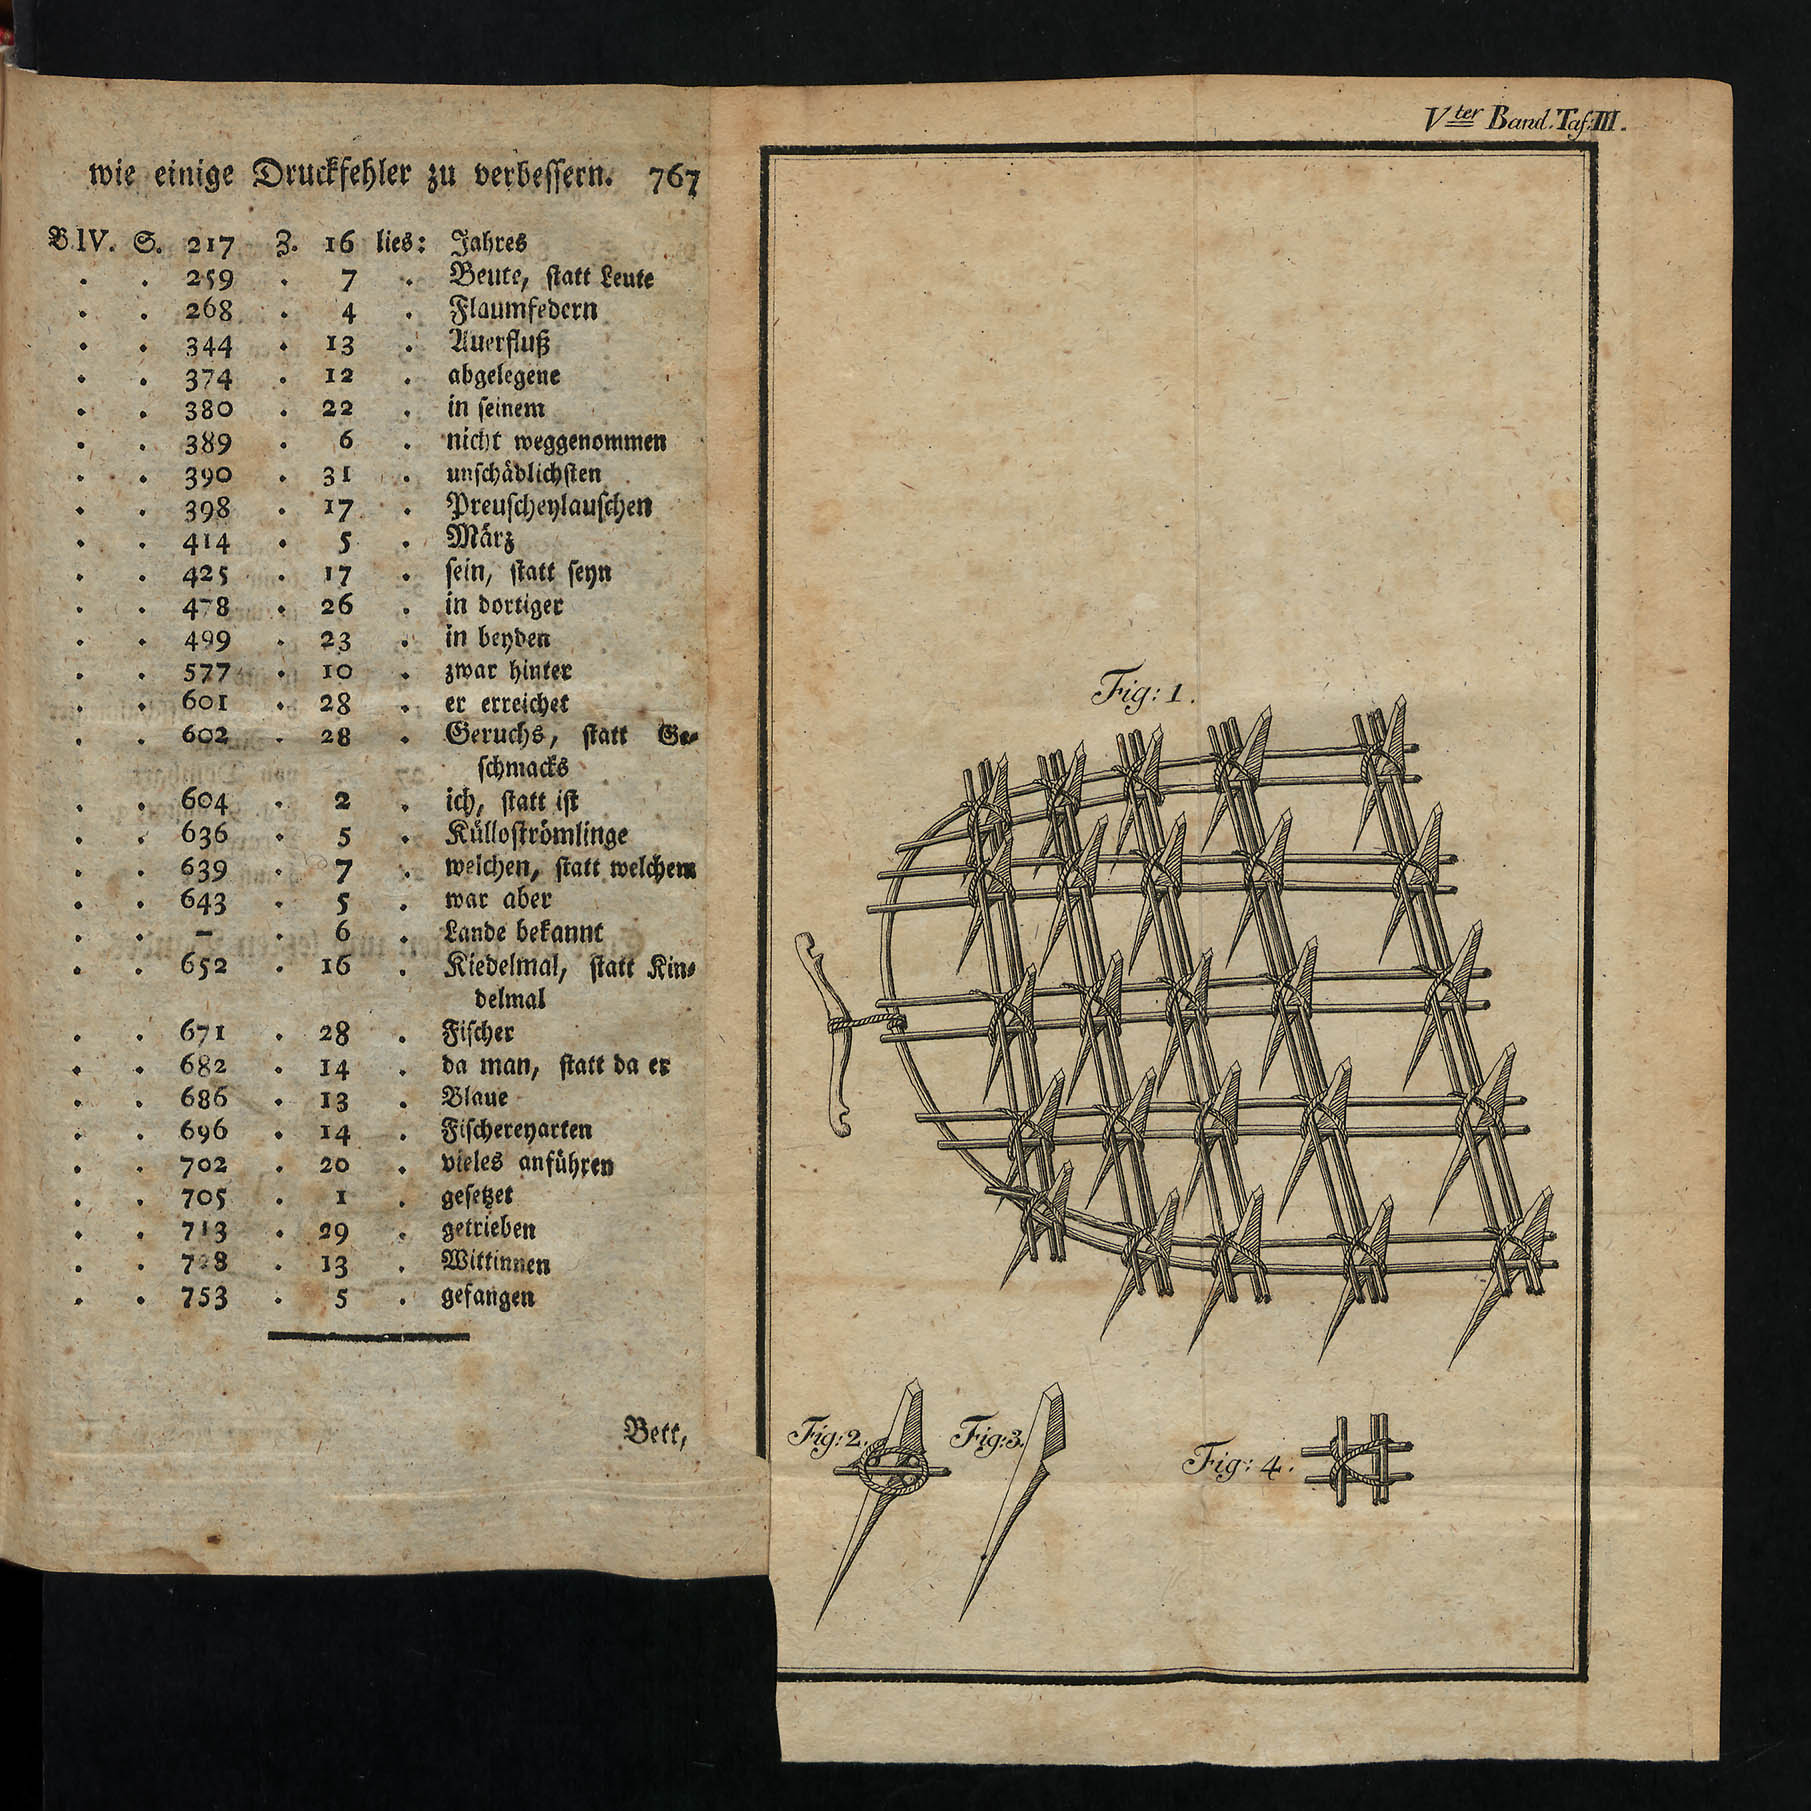 wie einige Druckfehler zu verbessern. 767
B IV. S. 217 Z. 16 lies: Jahres
. . 259 . 7 . Beute, statt Leute
. . 268 . 4 . Flaumfedern
. . 344 . 13 . Auerfluß
. . 374 . 12 . abgelegene
. . 380 . 22 . in seinem
. . 389 . 6 . nicht weggenommen
. . 390 . 31 . unschädlichsten
. . 398 . 17 . Preuscheylauschen
. . 414 . 5 . März
. . 425 . 17 . sein, statt seyn
. . 478 . 26 . in dortiger
. . 499 . 23 . in beyden
. . 577 . 10 . zwar hinter
. . 601 . 28 . er erreichet
. . 602 . 28 . Geruchs, statt Ge-
schmacks
. . 604 . 2 . ich, statt ist
. . 636 . 5 . Külloströmlinge
. . 639 . 7 . welchen, statt welchem
. . 643 . 5 . war aber
. . — . 6 . Lande bekannt
. . 652 . 16 . Kiedelmal, statt Kin-
delmal
. . 671 . 28 . Fischer
. . 682 . 14 . da man, statt da er
. . 686 . 13 . Blaue
. . 696 . 14 . Fischereyarten
. . 702 . 20 . vieles anführen
. . 705 . 1 . gesetzet
. . 713 . 29 . getrieben
. . . 13 . Wittinnen
. . 753 . 5 . gefangen
Bett,
Vter Band. Taf: III.
Fig: 1.
Fig: 2.
Fig: 3.
Fig: 4.